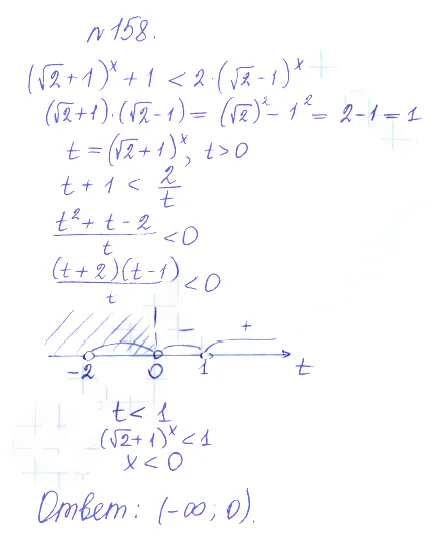 №158.
(√2+1)^x + 1 < 2·(√2-1)^x
(√2+1)·(√2-1) = (√2)² - 1² = 2-1 = 1
t = (√2+1)^x, t>0
t + 1 < 2/t
(t² + t - 2)/t < 0
((t+2)(t-1))/t < 0
- +
-2 0 1 t
t < 1
(√2+1)^x < 1
x < 0
Ответ: (-∞; 0).